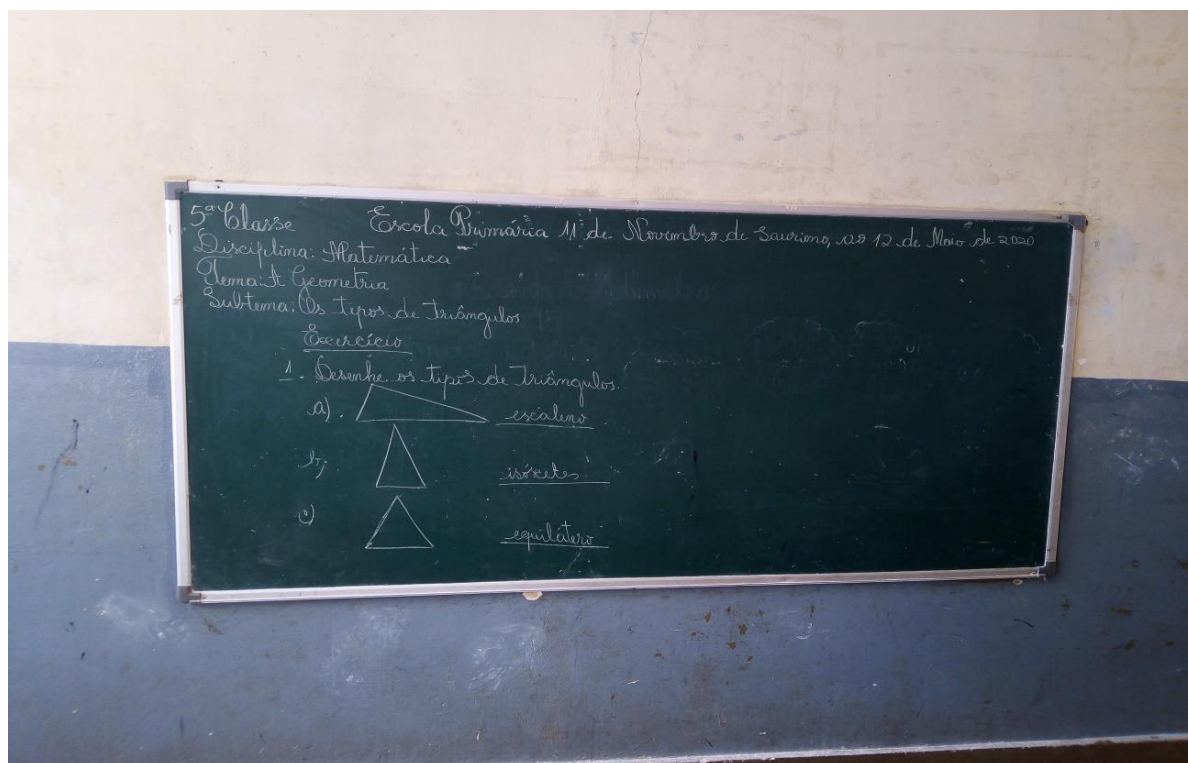 5ª Classe Escola Primária 11 de Novembro de Saurimo, ao 12 de Maio de 2020
Disciplina: Matemática
Tema: A Geometria
Subtema: Os tipos de Triângulos
Exercício
1. Desenhe os tipos de Triângulos.
a). escaleno
b); isóscetes
c) equilátero